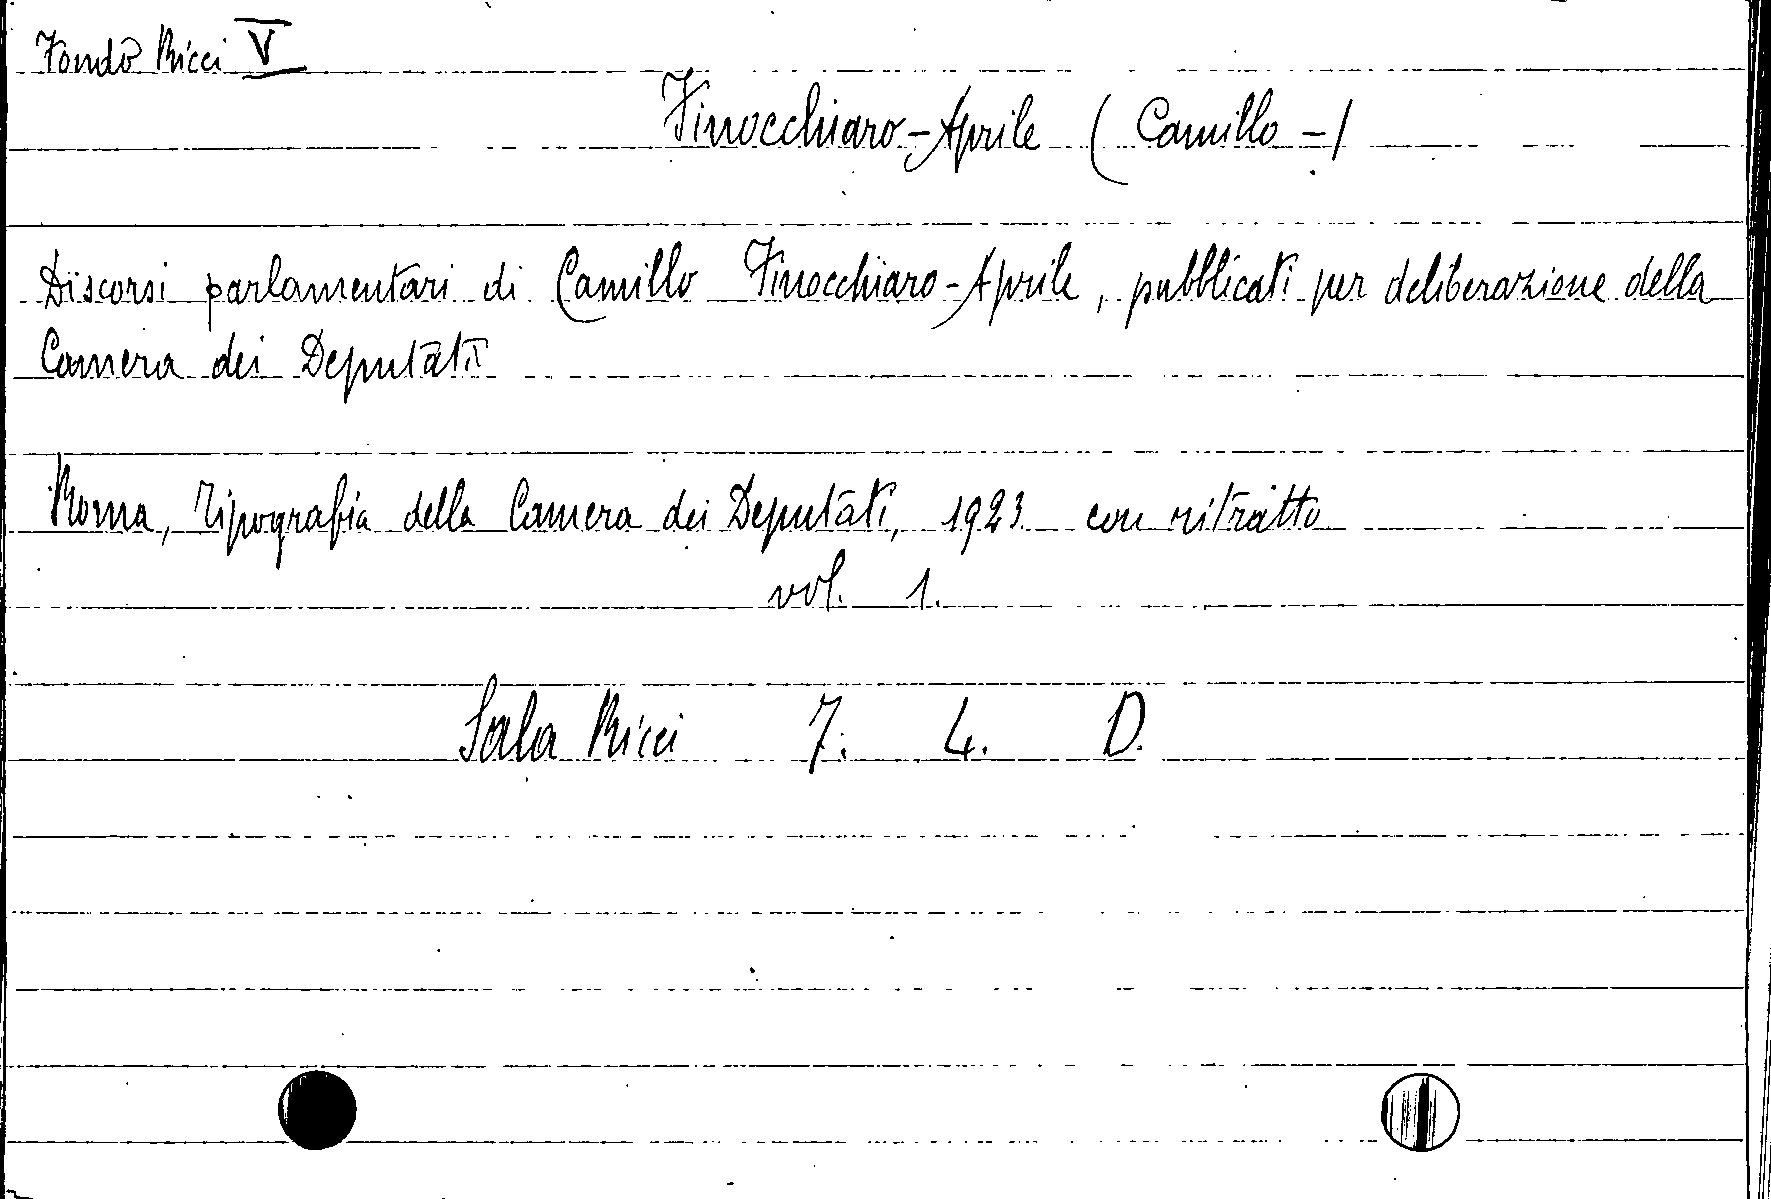 Fondo Ricci V
Finocchiaro-Aprile (Camillo -)
Discorsi parlamentari di Camillo Finocchiaro-Aprile, pubblicati per deliberazione della
Camera dei Deputati
Roma, Tipografia della Camera dei Deputati, 1923 con ritratto
vol. 1.
Sala Ricci 7. 4. D.